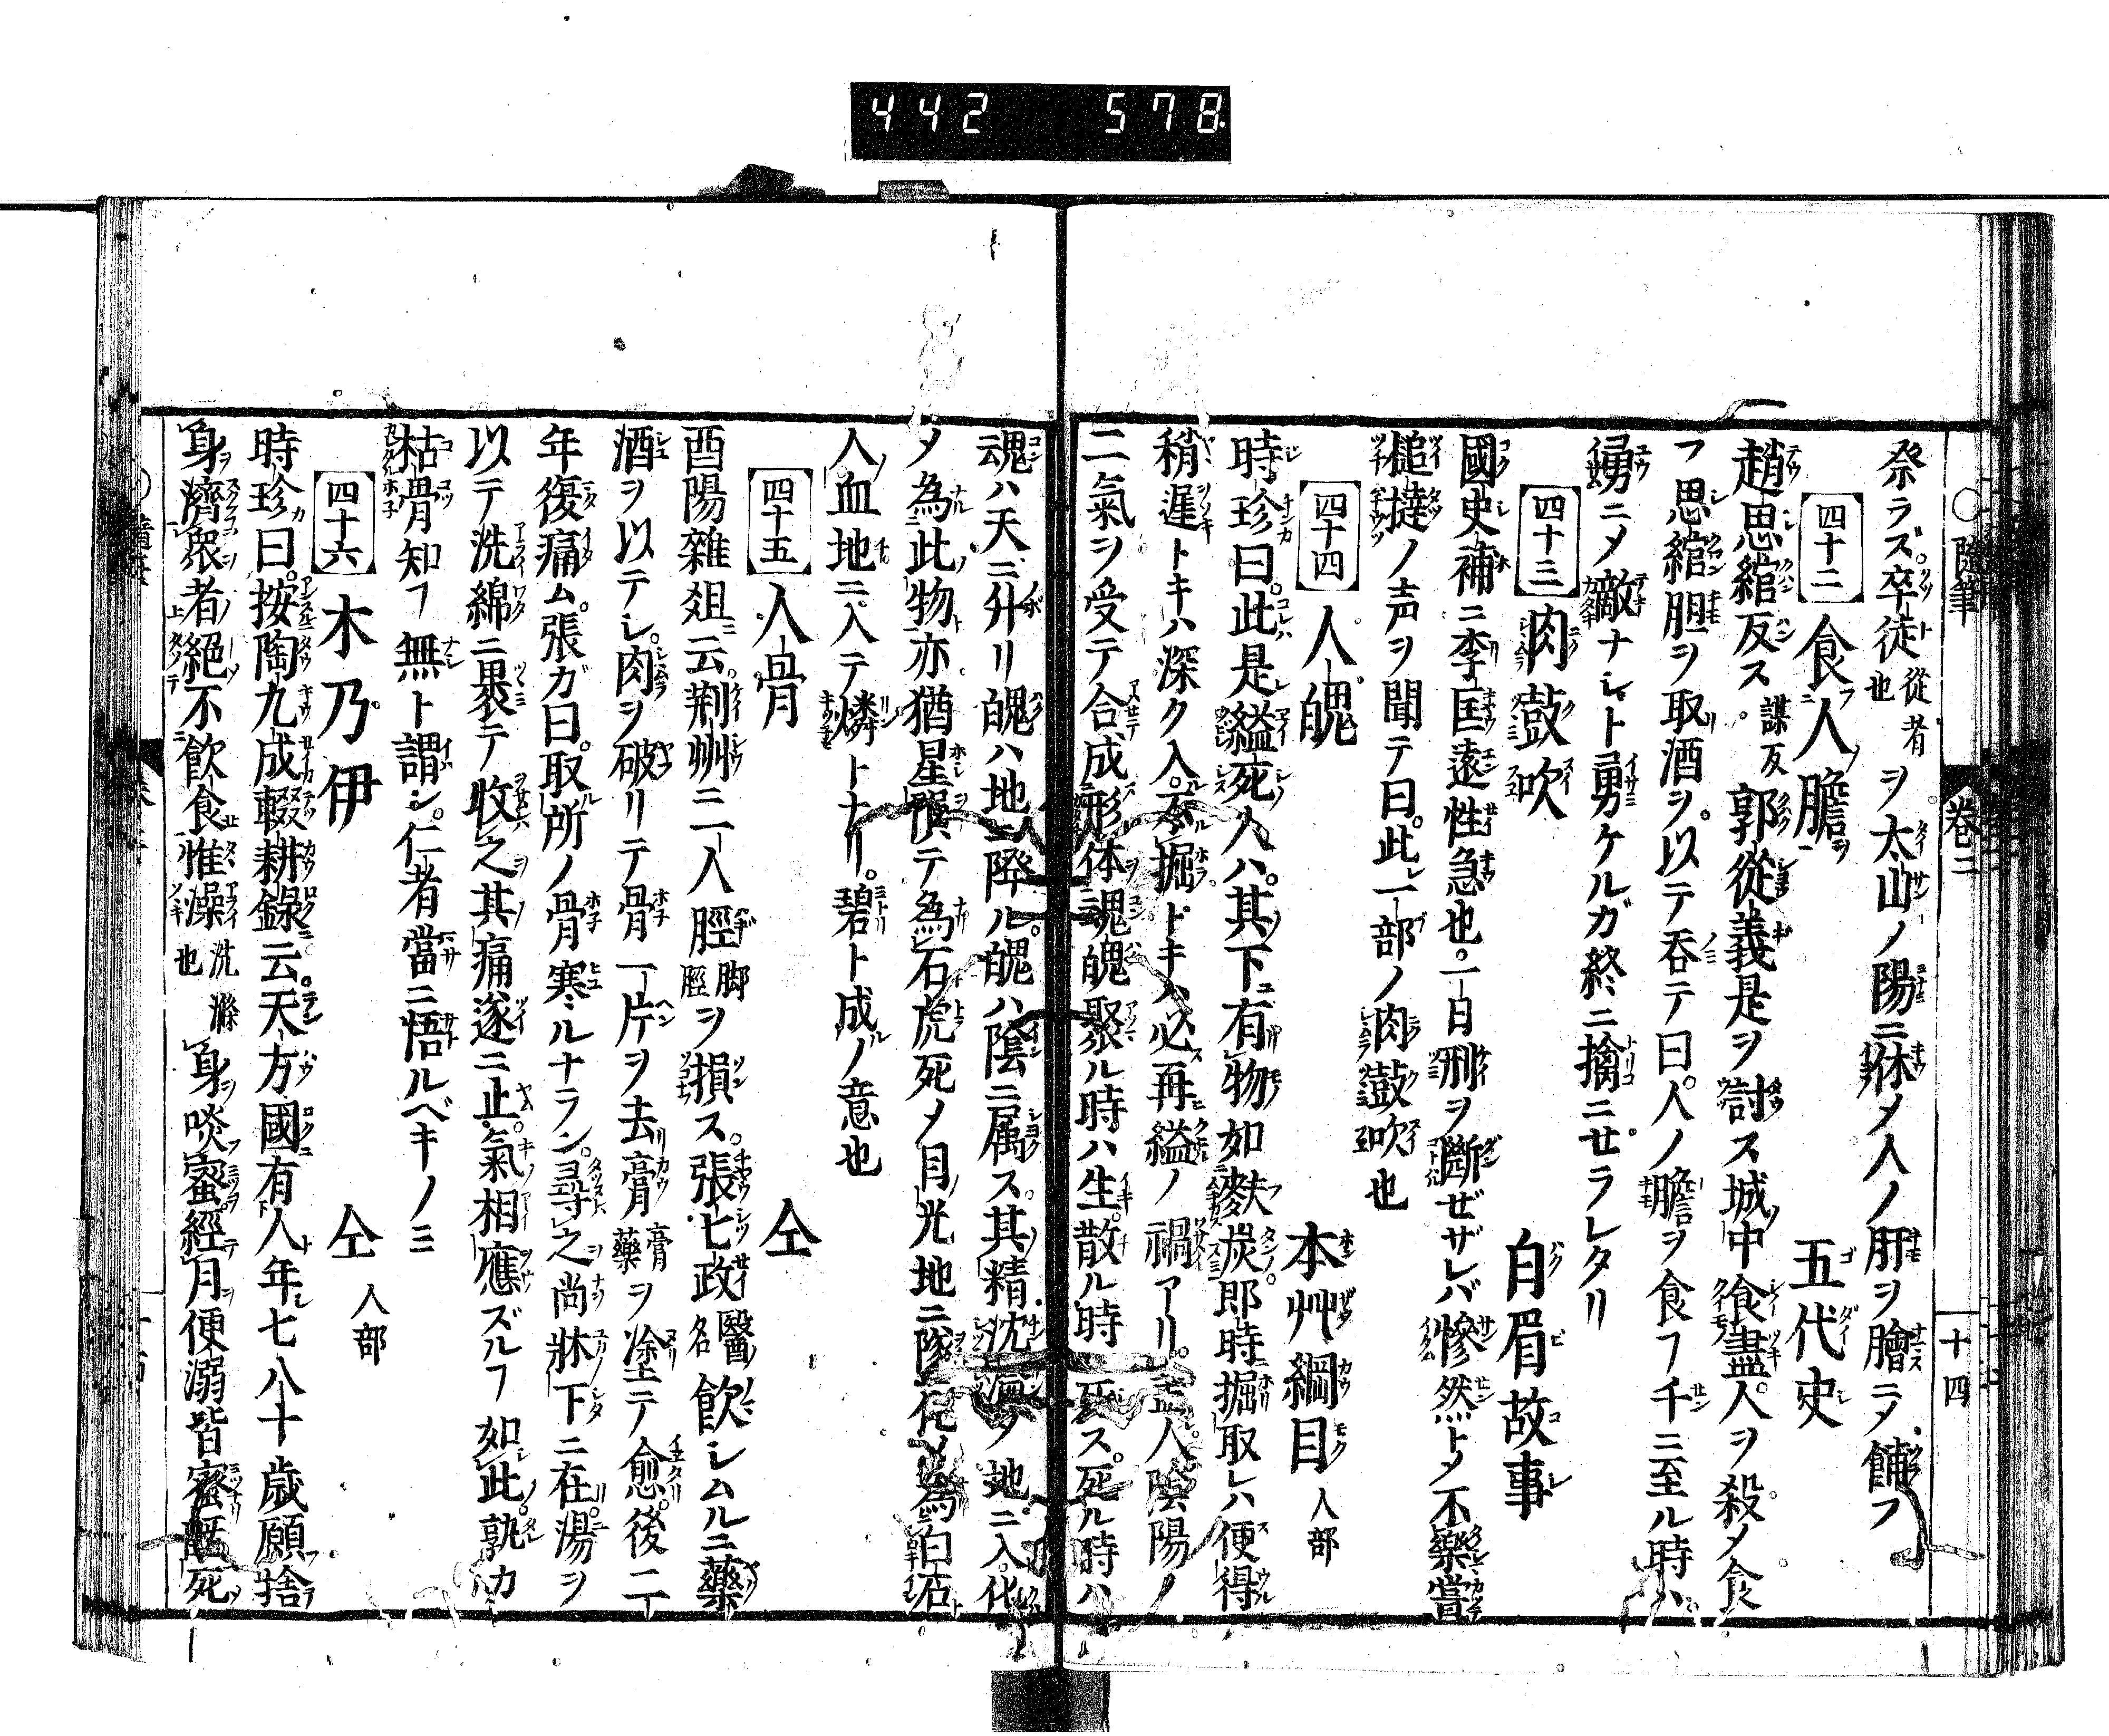 442 578
隨筆 卷二 十四
祭ラズ卒徒從者也ヲ太山ノ陽ニ休メ人ノ肝ヲ膾ニメ餔フ
四十二 食人膽 五代史
趙思綰反ス謀反郭從義是ヲ討ス城中食盡人ヲ殺メ食
フ思綰胆ヲ取酒ヲ以テ呑テ曰人ノ膽ヲ食フ千ニ至ル時ハ
勇ニメ敵ナシト勇ケルガ終ニ擒ニセラレタリ
四十三 肉鼓吹 白眉故事
國史補ニ李匡遠性急也一日刑ヲ斷ゼザレバ慘然トメ不樂嘗
槌撻ノ声ヲ聞テ曰此一部ノ肉鼓吹也
四十四 人魄 本艸綱目人部
時珍曰此是縊死人ハ其下ニ有物如麩炭即時掘取レハ便得
稍遲トキハ深ク入不掘トキハ必再縊ノ禍アリ盖人陰陽ノ
二氣ヲ受テ合成形体魂魄聚ル時ハ生散ル時死ス死ル時ハ
魂ハ天ニ升リ魄ハ地ニ降ル魄ハ陰ニ属ス其精沈淪メ地ニ入化
メ為此物亦猶星隕テ為石虎死メ目光地ニ墜化メ為白石
人血地ニ入テ燐トナリ碧ト成ノ意也
四十五 人骨 仝
酉陽雜俎云荆州ニ一人脛脚脛ヲ損ス張七政醫名飲シムルニ藥
酒ヲ以テシ肉ヲ破リテ骨一片ヲ去膏膏藥ヲ塗テ愈後二
年復痛ム張ガ曰取所ノ骨寒ルナラン尋之尚牀下ニ在湯ヲ
以テ洗綿ニ裹テ收之其痛遂ニ止氣相應ズルフ如此孰カ
枯骨知フ無ト謂シ仁者當ニ悟ルベキノミ
四十六 木乃伊 仝人部
時珍曰按陶九成輟耕錄云天方國有人年七八十歲願捨
身濟衆者絕不飲食惟澡洗滌也身啖蜜經月便溺皆蜜既死